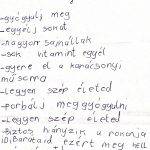 -gyógyulj meg
-egyél sokat
-nagyon sajnállak
-sok vitamint egyél
-gyere el a karácsonyi
műsorra
-legyen szép életed
-próbálj meggyógyulni
-Legyen szép életed
-biztos hiányzik a rokonja
i,barátaid ezért meg kell